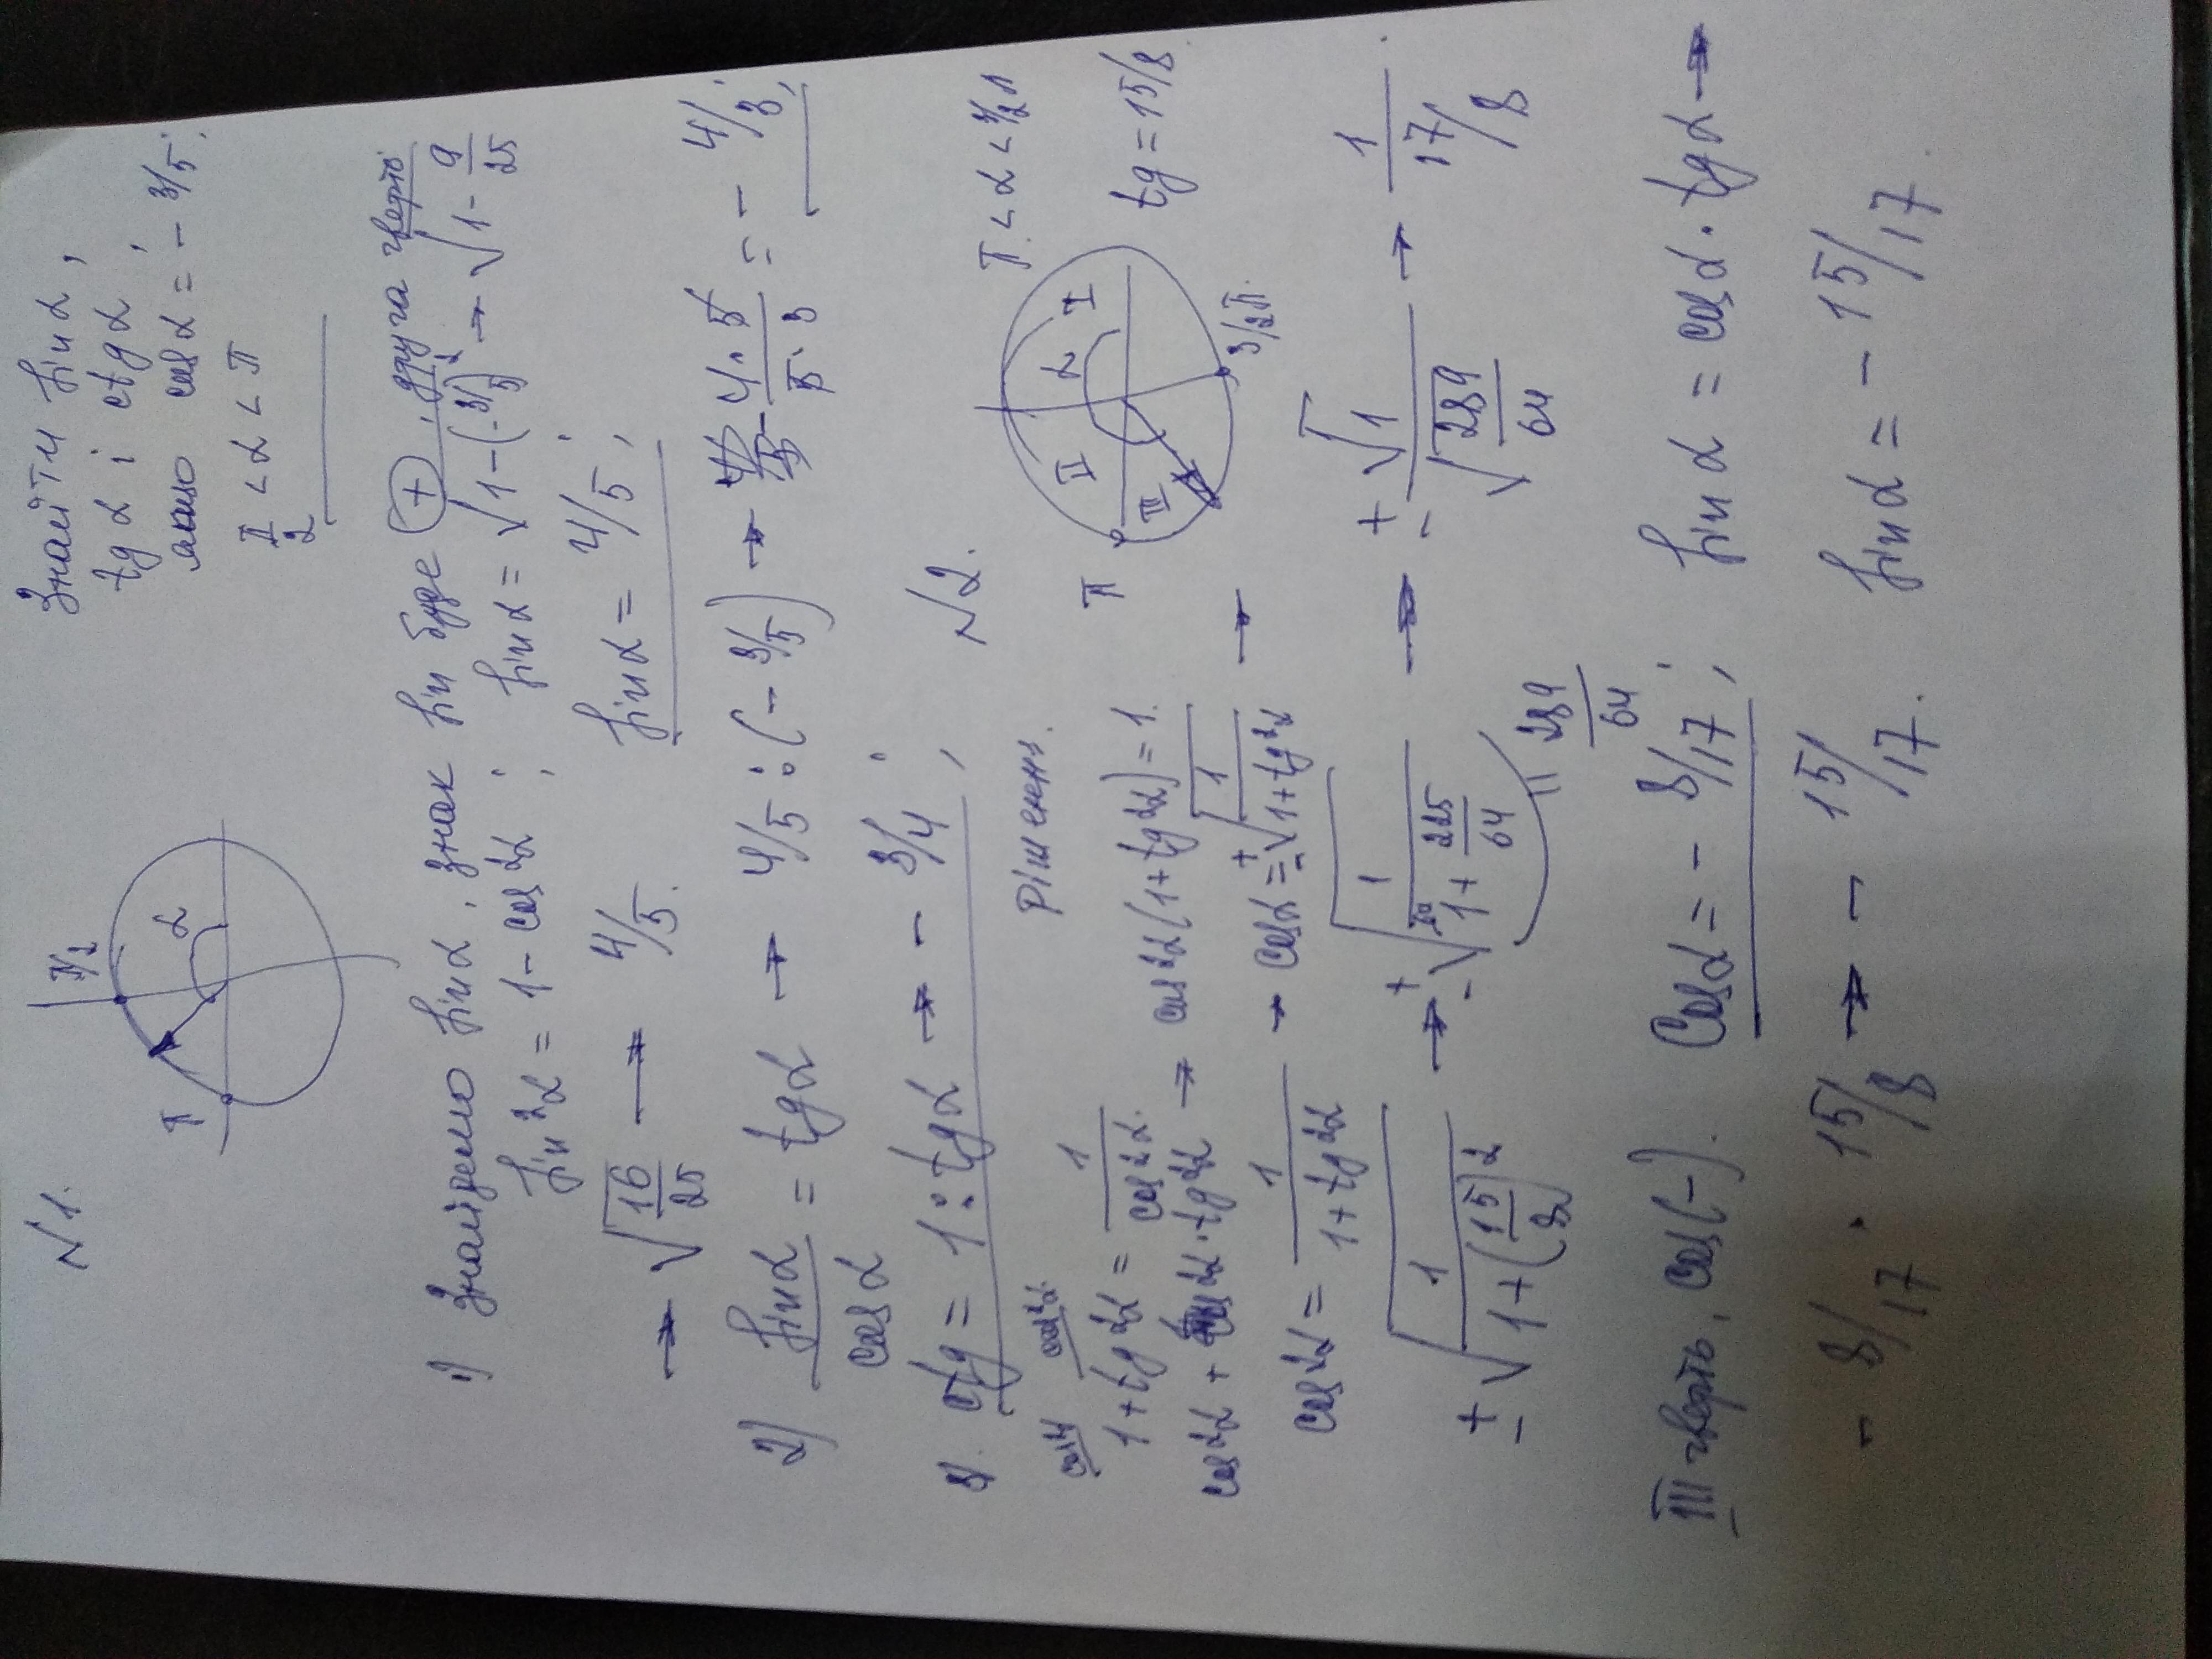 N1.
Знайти sin α,
tg α i ctg α,
якшо cos α = - 3/5.
π/2 < α < π
π/2
π
α
1) Знайдемо sin α, знак sin буде (+), друга чверть.
sin²α = 1 - cos²α ; sin α = √1-(-3/5)² → √1 - 9/25
→ √16/25 → 4/5. sin α = 4/5 ;
2) sin α / cos α = tg α → 4/5 : (- 3/5) → - 4·5 / 5·3 = - 4/3 ;
3). ctg = 1 : tg α → - 3/4 ;
N2.
π < α < 3/2 π
tg = 15/8.
Рішення.
I
II
III
α
π
3/2 π.
1 + tg²α = 1 / cos²α.
cos²α + cos²α · tg²α → cos²α (1 + tg²α) = 1.
cos²α = 1 / 1 + tg²α → cos α = ± √1 / 1 + tg²α →
± √1 / 1 + (15/8)² → ± √1 / 1 + 225/64 → ± √1 / √289/64 → 1 / 17/8 .
= 289/64
III чверть, cos (-). Cos α = - 8/17 ; sin α = cos α · tg α →
- 8/17 · 15/8 → - 15/17. sin α = - 15/17.